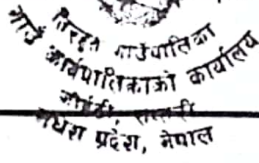 तिरहुत गाउँपालिका
गाउँ कार्यपालिकाको कार्यालय
सप्तरी
मधेश प्रदेश, नेपाल